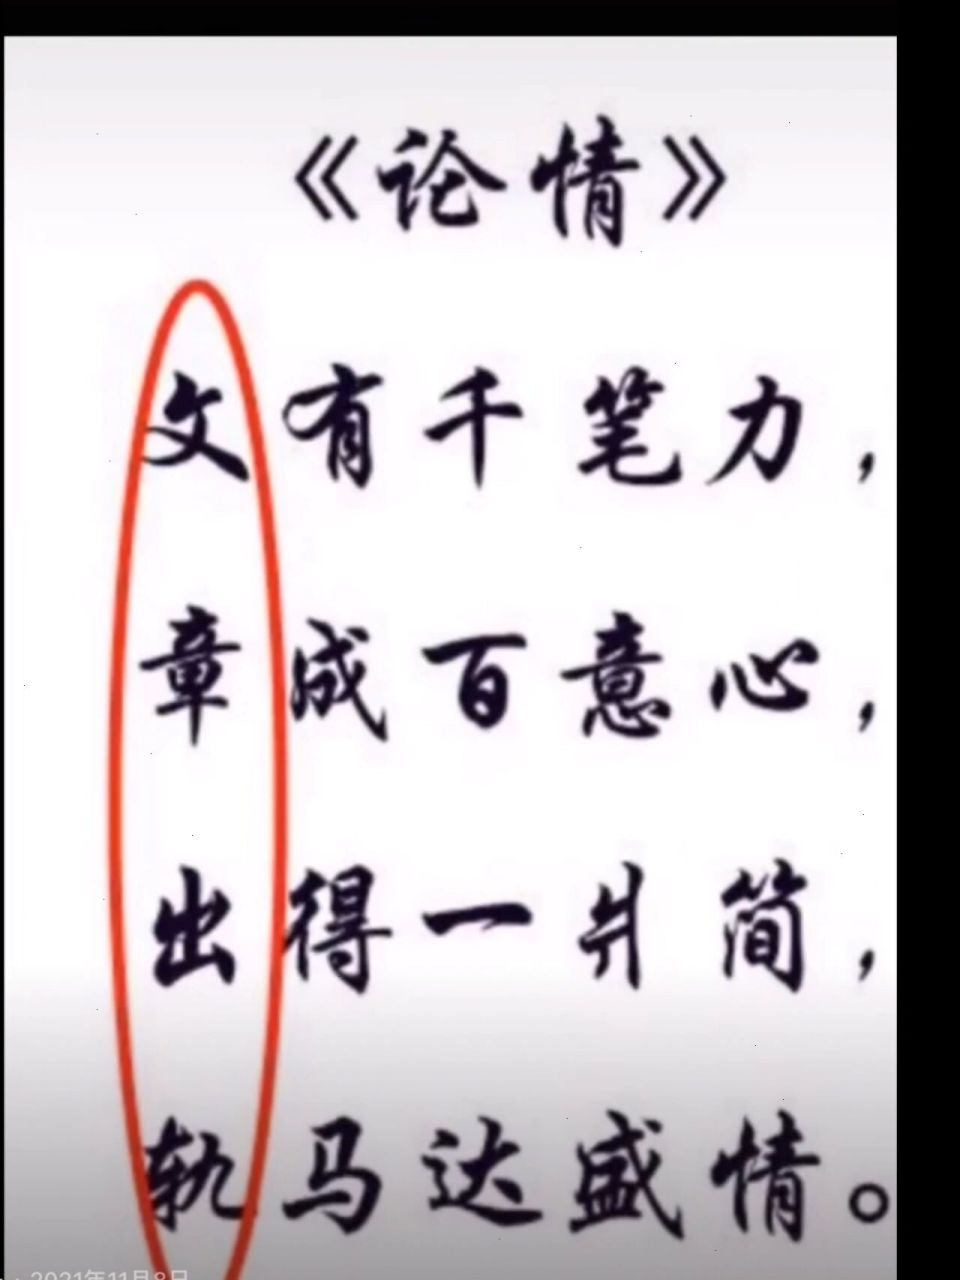 《论情》
文有千笔力，
章成百意心，
出得一爿简，
轨马达盛情。
2021年11月8日